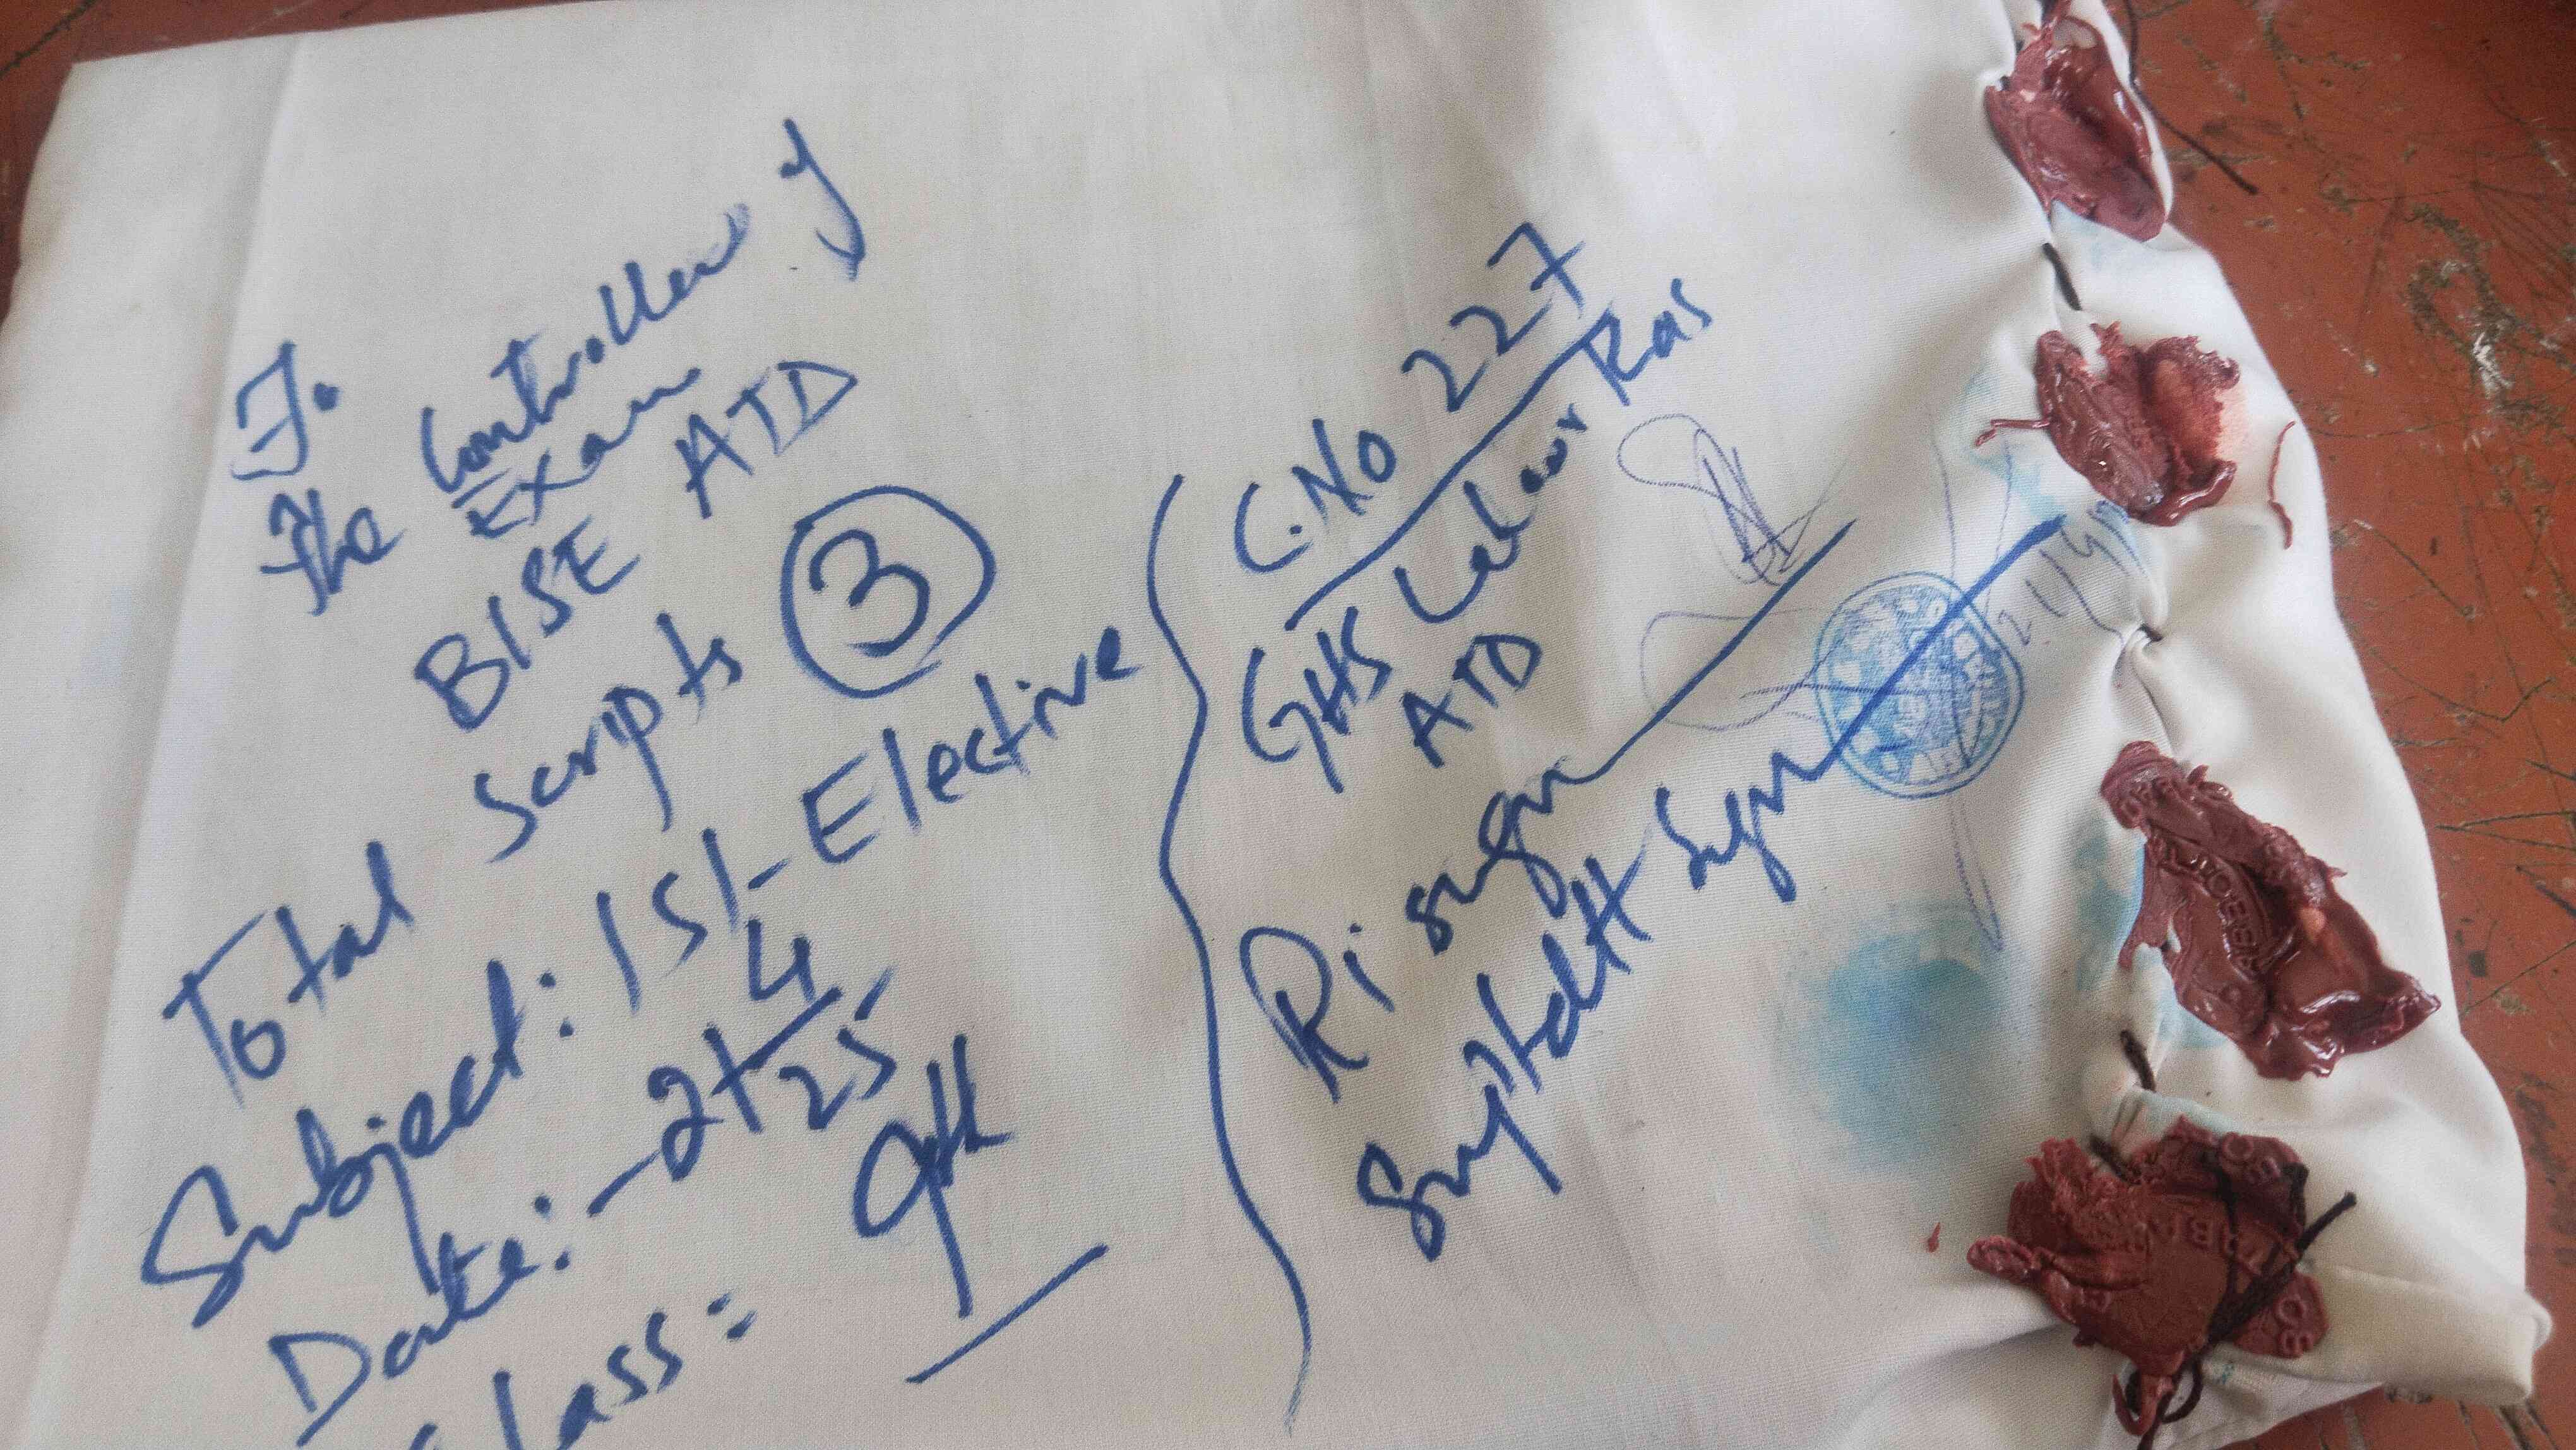 To
The Controller of
Exam
BISE ATD
Total Scripts 3
Subject: ISL-Elective
Date:-
4
25
Class: 9th
C.No 227
GHS Ras
ATD
RI sign
Suptdtt Sign
ABBOT